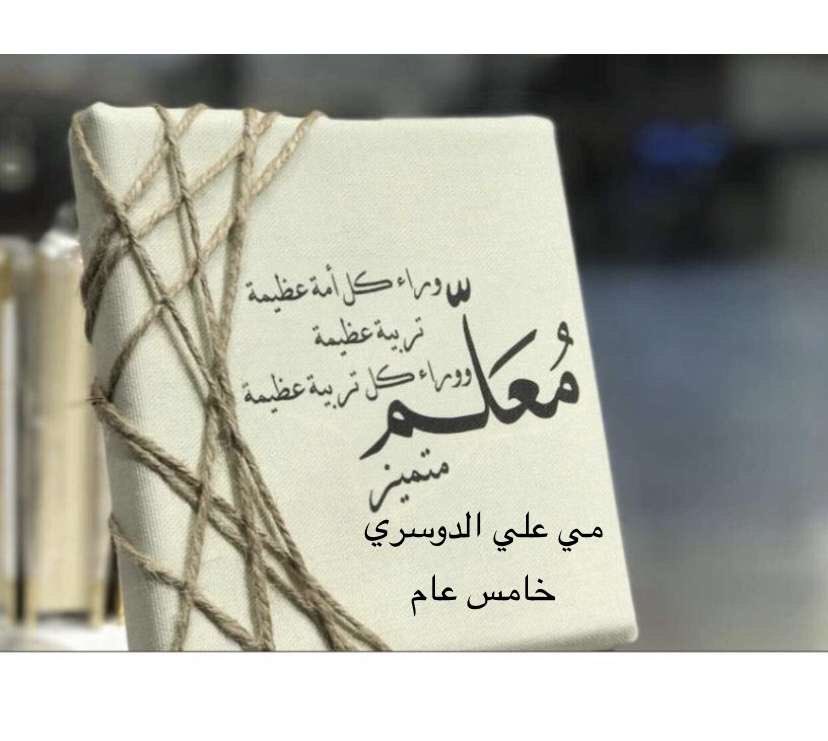 وراء كل أمة عظيمة
تربية عظيمة
ووراء كل تربية عظيمة
معَلّم
متميز
مي علي الدوسري
خامس عام